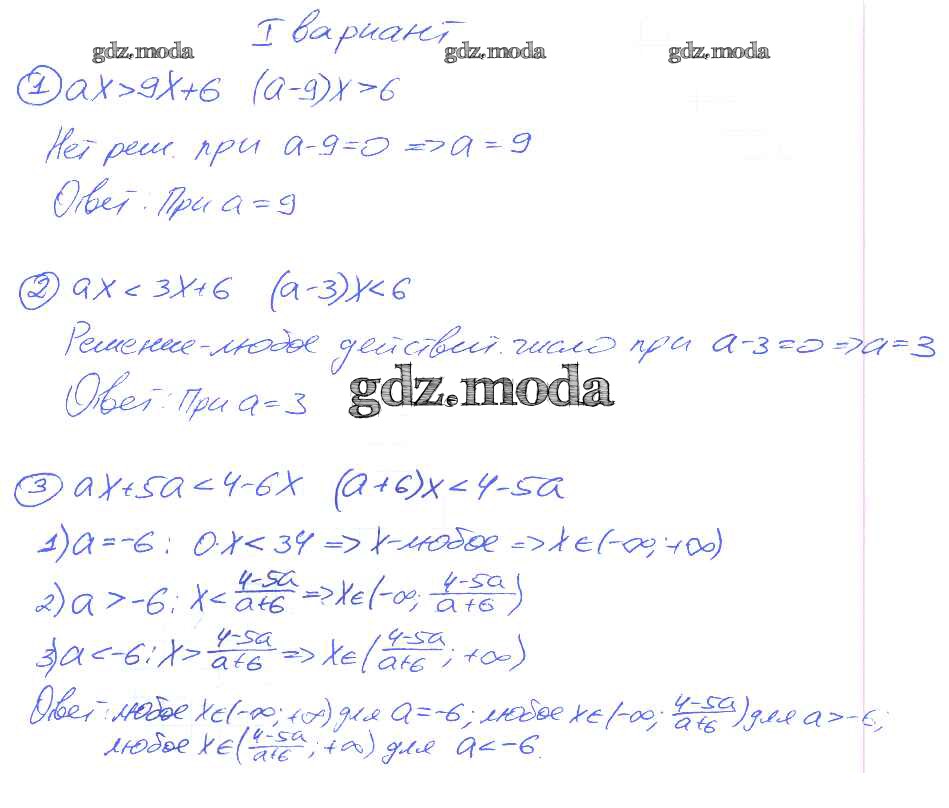 I вариант
gdz.moda gdz.moda gdz.moda
① ax>9x+6 (a-9)x>6
Нет реш. при a-9=0 => a=9
Ответ: При a=9
② ax<3x+6 (a-3)x<6
Решение-любое действит. число при a-3=0 => a=3
Ответ: При a=3
gdz.moda
③ ax+5a<4-6x (a+6)x<4-5a
1) a=-6: 0·x<34 => x-любое => x∈(-∞;+∞)
2) a>-6: x<(4-5a)/(a+6) => x∈(-∞; (4-5a)/(a+6))
3) a<-6: x>(4-5a)/(a+6) => x∈((4-5a)/(a+6); +∞)
Ответ: любое x∈(-∞;+∞) для a=-6; любое x∈(-∞; (4-5a)/(a+6)) для a>-6;
любое x∈((4-5a)/(a+6); +∞) для a<-6.